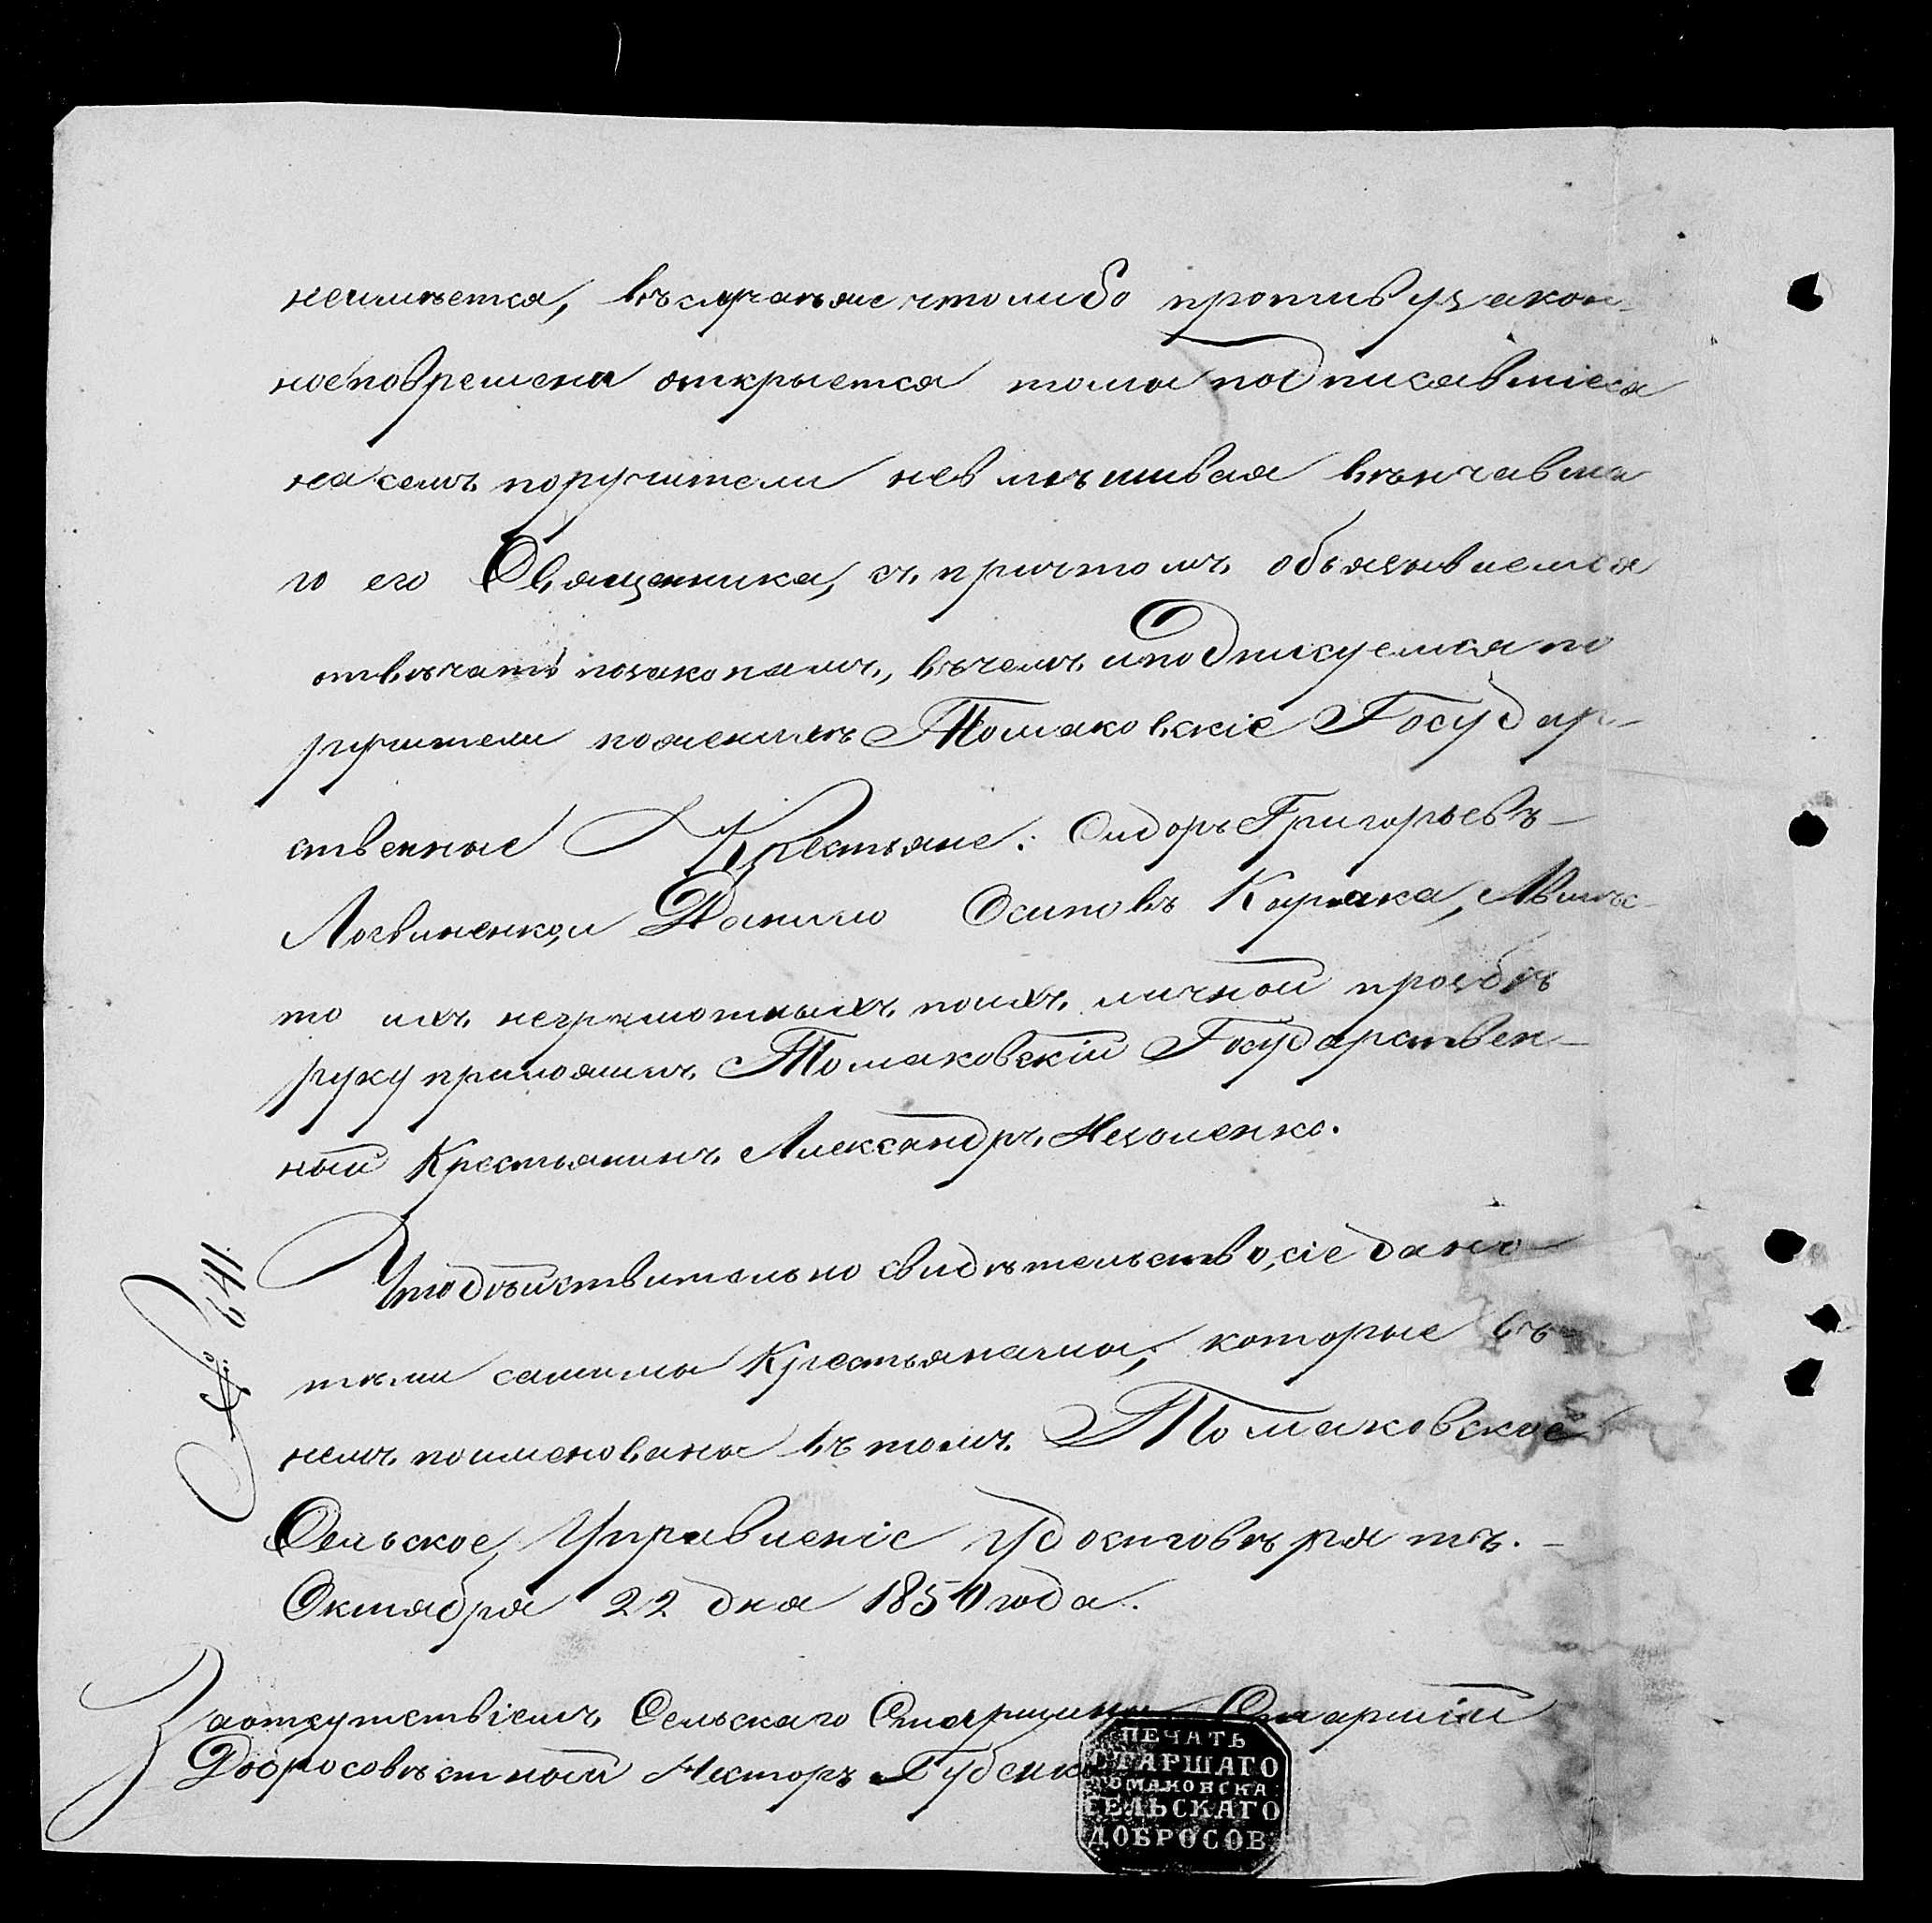 неимѣется, въслучаѣже чтолибо противузакон-
ноеповремени откроется томы подписавшіеся
на семъ поручители невмѣшивая вѣнчавша
го его Священника, съ причтомъ обязываемся
отвѣчать позаконамъ, въчемъ иподписуемся по
ручители поженихѣ Томаковскіе Государ-
ственные Крестьяне: Сидоръ Григорьевъ-
Логвиненко, и Данило Осиповъ Каряка, Авмѣс-
то ихъ неграмотныхъ поихъ личной прозбѣ
руку приложилъ Томаковскій Государствен-
ный Крестьянинъ Александръ Незоленко.
Чтодѣйствительно свидѣтельство, сіе дано
тѣми самими Крестьянами, которые въ
немъ поименованы въ томъ Томаковское
Сельское Управленіе Удостовѣряетъ.-
Октября 22 дня 1850 года.
Заотсутствіемъ Сельскаго Старшины Старшій
Добросовѣстный Нестор Губенко
ПЕЧАТЬ
СТАРШАГО
ТОМАКОВСКА
СЕЛЬСКАГО
ДОБРОСОВ
№ 241